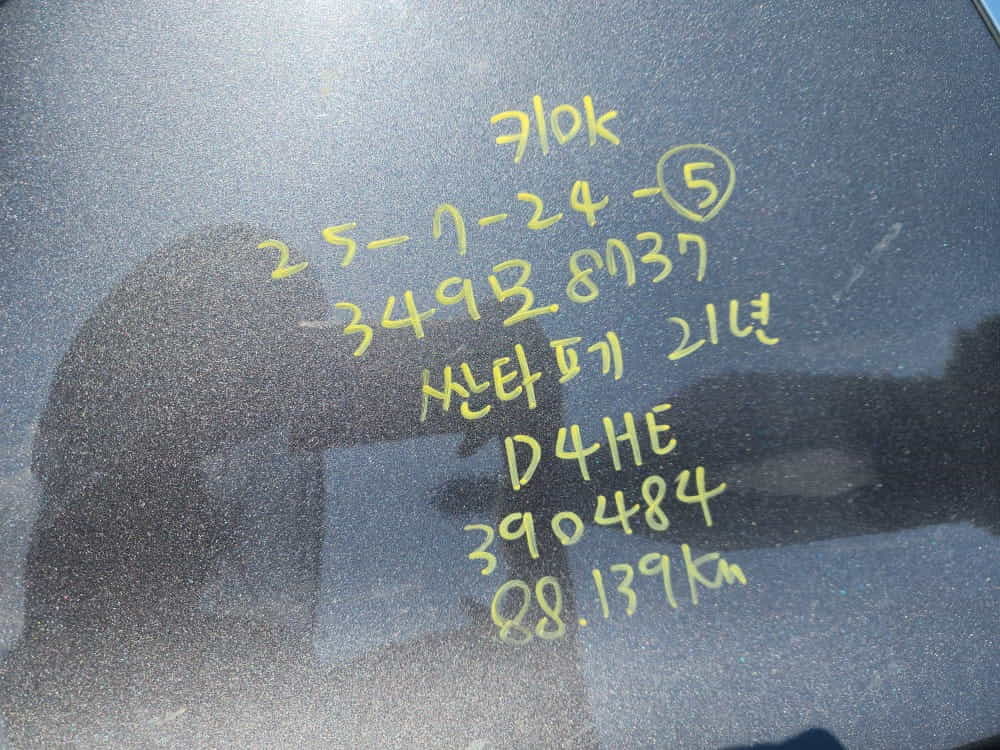 키OK
25-7-24-⑤
349모8737
싼타페 21년
D4HE
390484
88.139Km